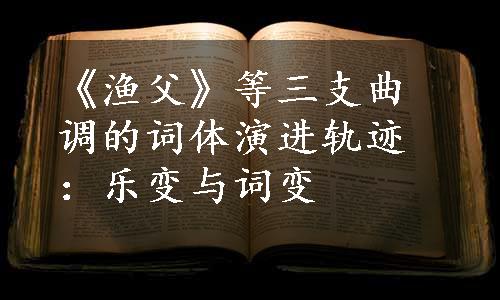 《渔父》等三支曲
调的词体演进轨迹
：乐变与词变